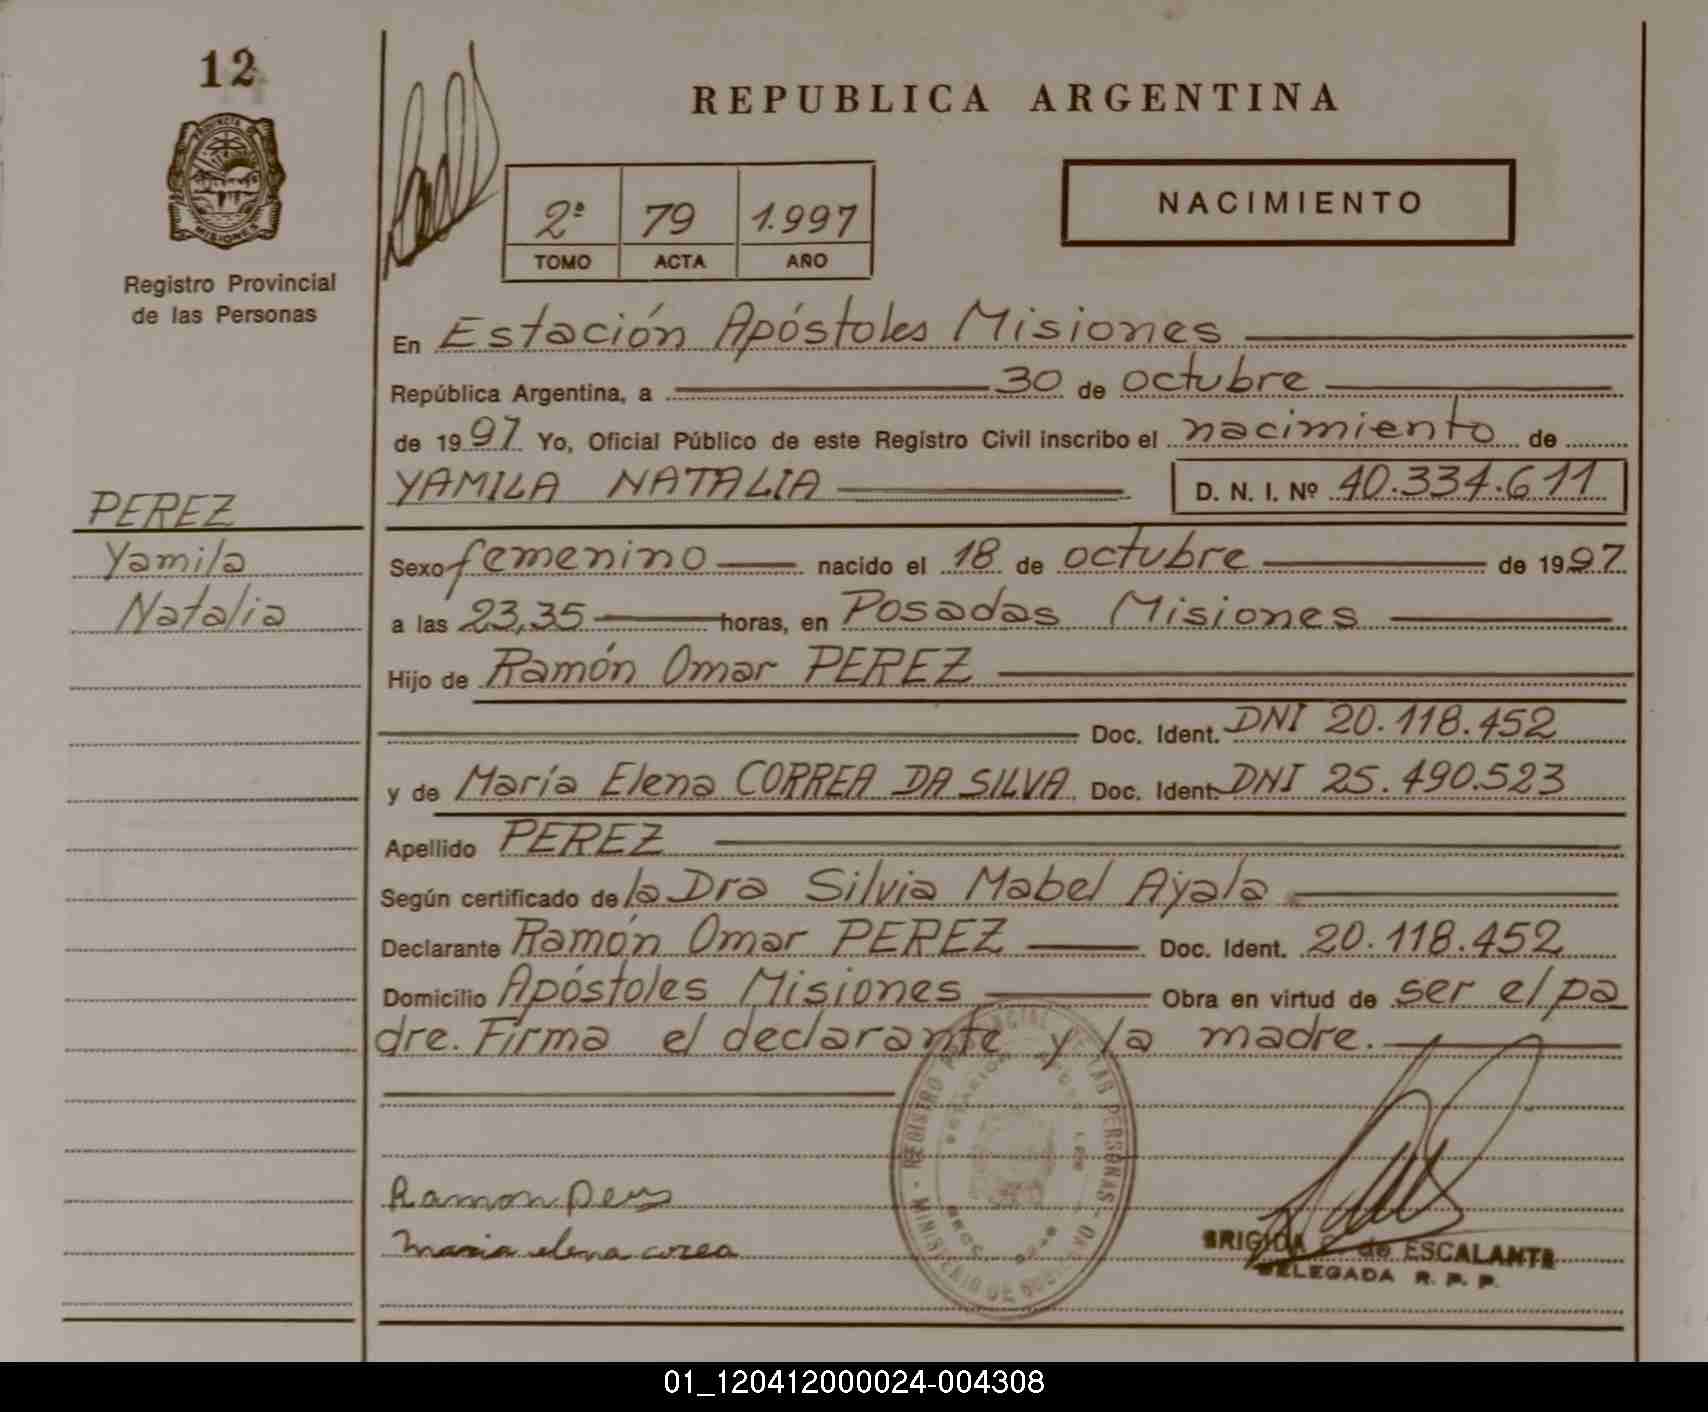 12
PROVINCIA DE
MISIONES
Registro Provincial
de las Personas
REPUBLICA ARGENTINA
2ª 79 1.997
TOMO ACTA AÑO
NACIMIENTO
En Estación Apóstoles Misiones
República Argentina, a 30 de octubre
de 1997 Yo, Oficial Público de este Registro Civil inscribo el nacimiento de
YAMILA NATALIA D. N. I. Nº 40.334.611
PEREZ
Yamila
Natalia
Sexo femenino nacido el 18 de octubre de 1997
a las 23,35 horas, en Posadas Misiones
Hijo de Ramón Omar PEREZ
Doc. Ident. DNI 20.118.452
y de María Elena CORREA DA SILVA Doc. Ident. DNI 25.490.523
Apellido PEREZ
Según certificado de la Dra Silvia Mabel Ayala
Declarante Ramón Omar PEREZ Doc. Ident. 20.118.452
Domicilio Apóstoles Misiones Obra en virtud de ser el pa
dre. Firma el declarante y la madre.
REGISTRO PROVINCIAL DE LAS PERSONAS
MINISTERIO DE
Ramon
maria elena correa
BRIGIDA de ESCALANTE
DELEGADA R. P. P.
01_120412000024-004308